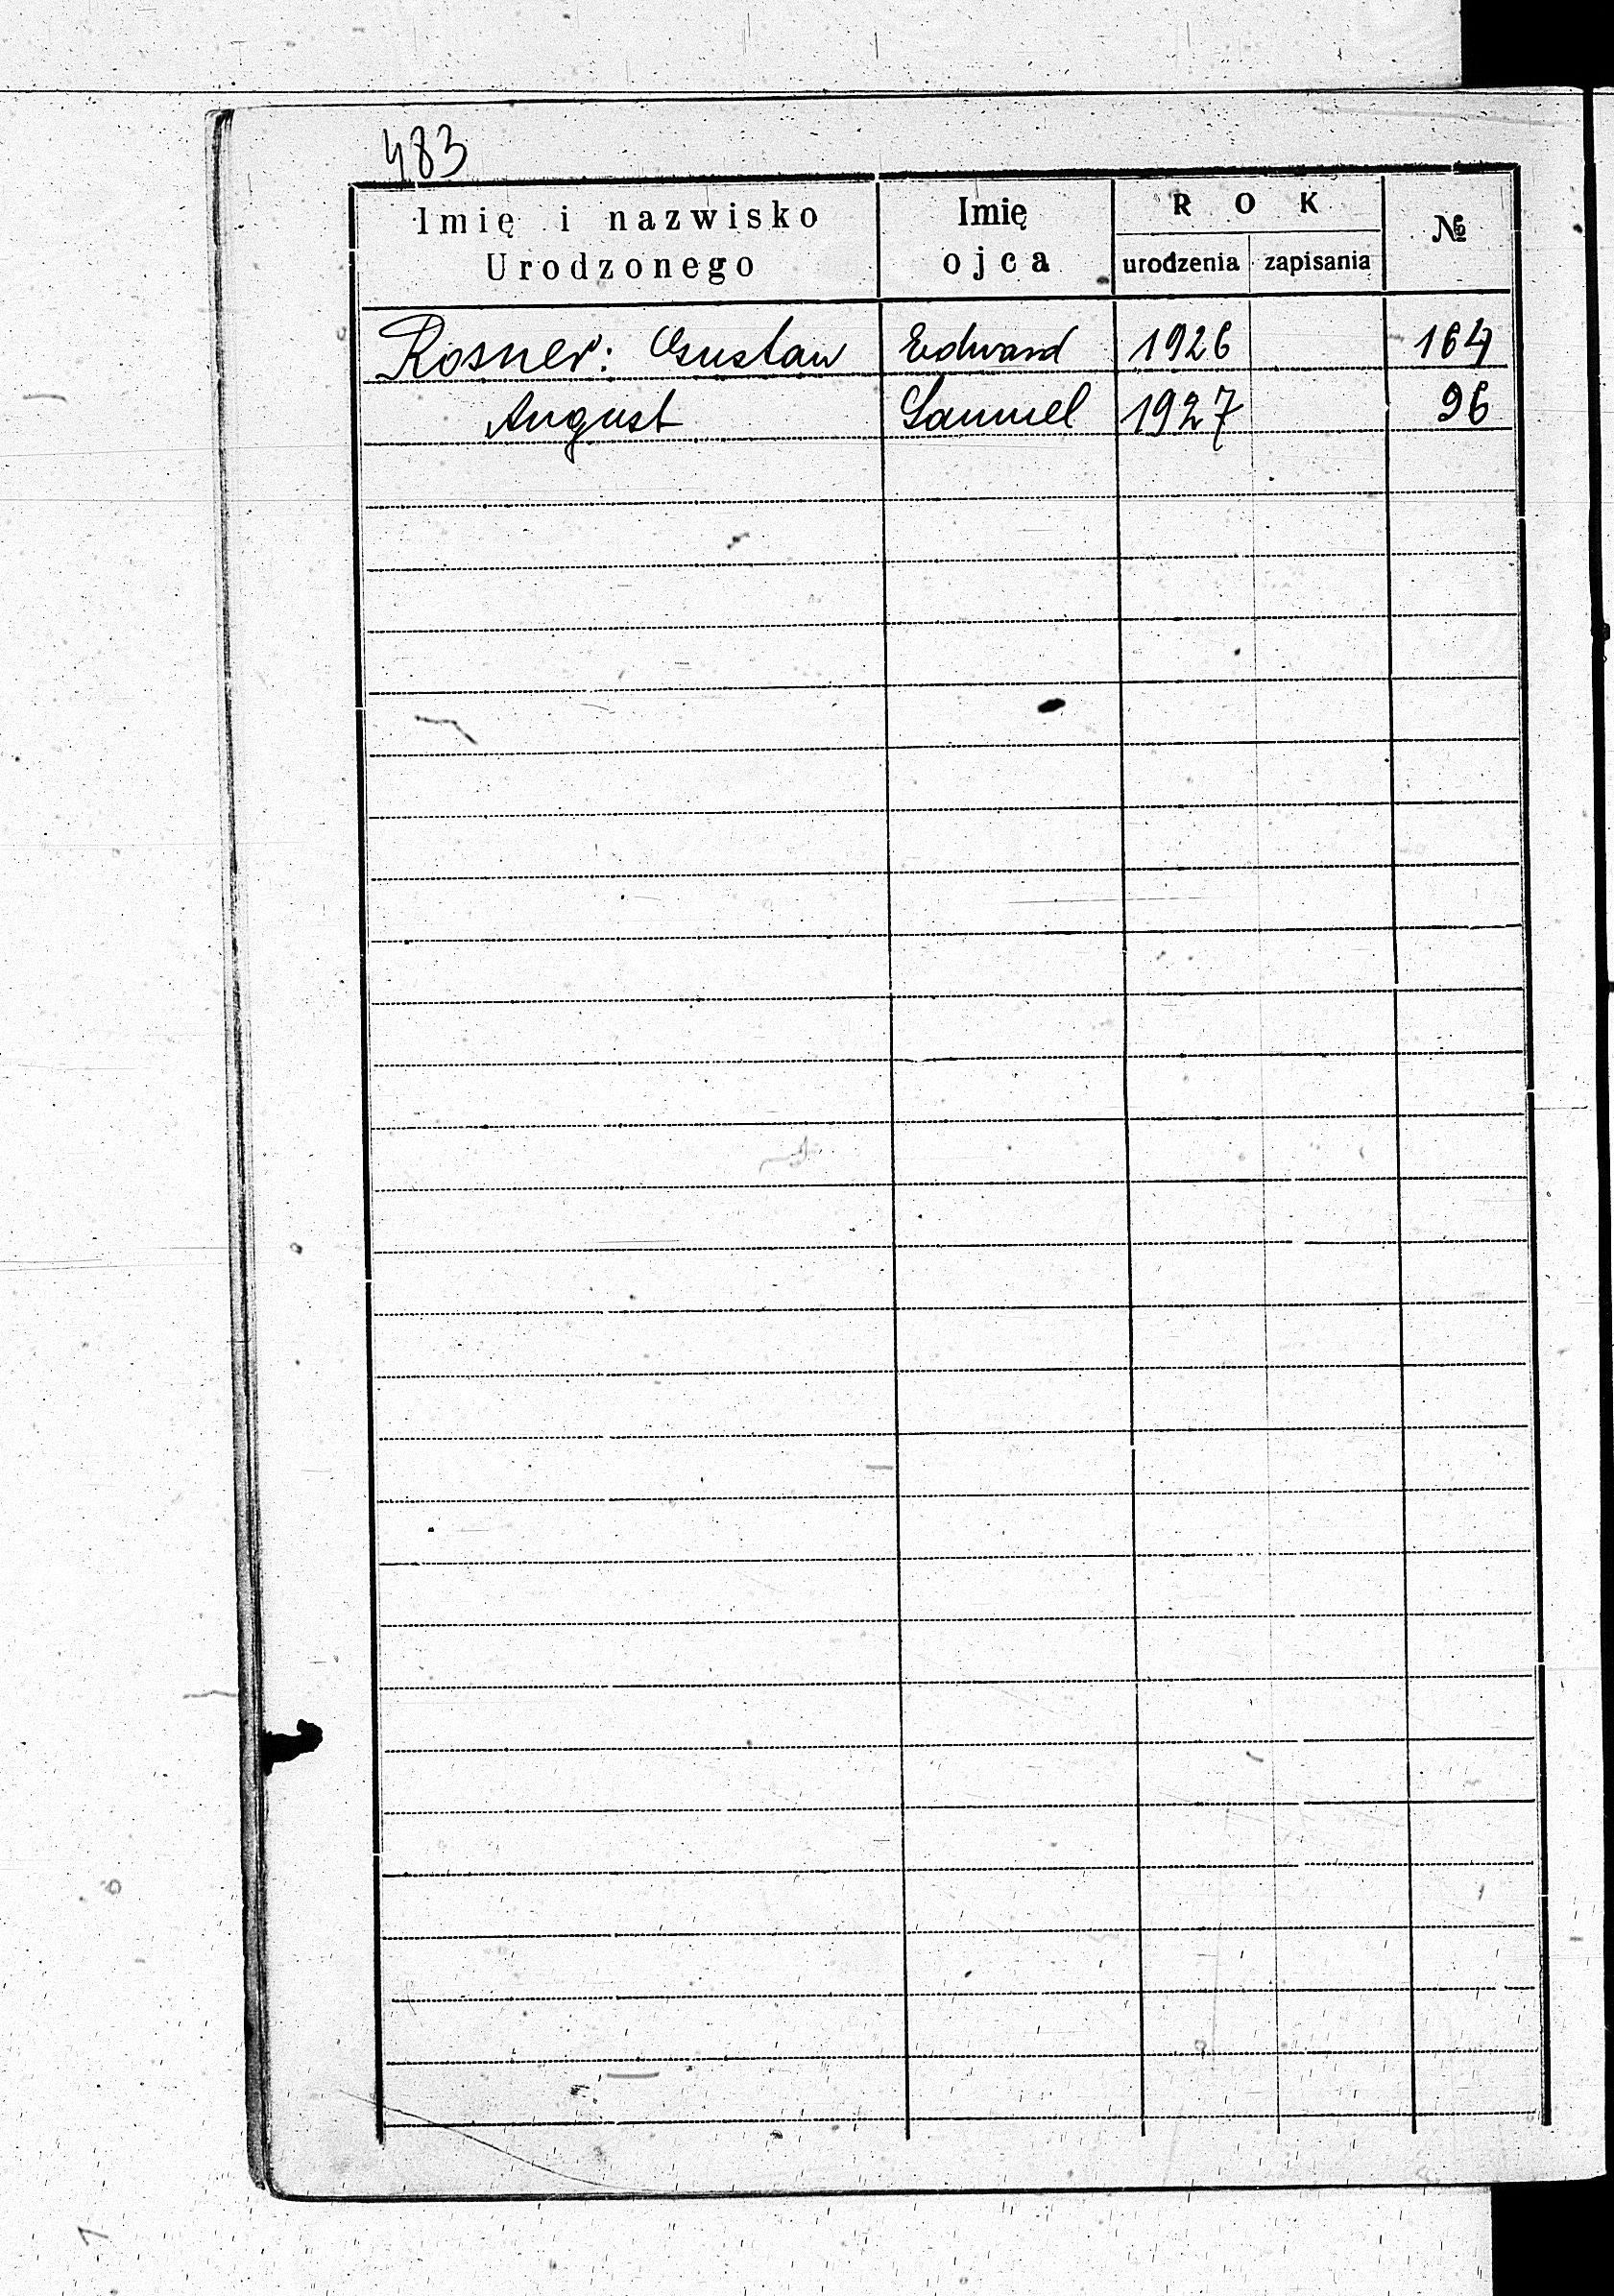 483
Imię i nazwisko Urodzonego | Imię ojca | ROK urodzenia | zapisania | №
Rosner: Gustaw | Edward | 1926 | | 164
August | Samuel | 1927 | | 96